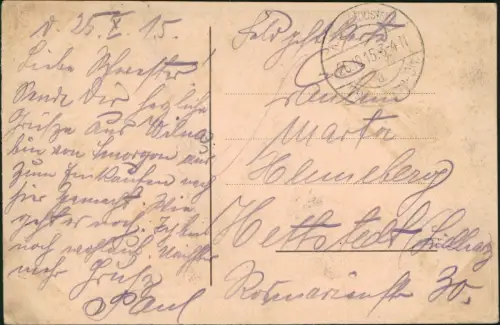 d. 25.X.15.
Liebe Schwester!
Sende Dir herzliche
Grüße aus Wilna
bin von Smorgon aus
zum Einkaufen nach
hier gemacht. Wie
geht es noch. Ich bin
noch wohlauf. Nächstens
mehr Gruß
Paul
Feldpostkarte
Fräulein
Marta
Henneberg
Hettstedt (Südharz)
Rosmarienstr 30.